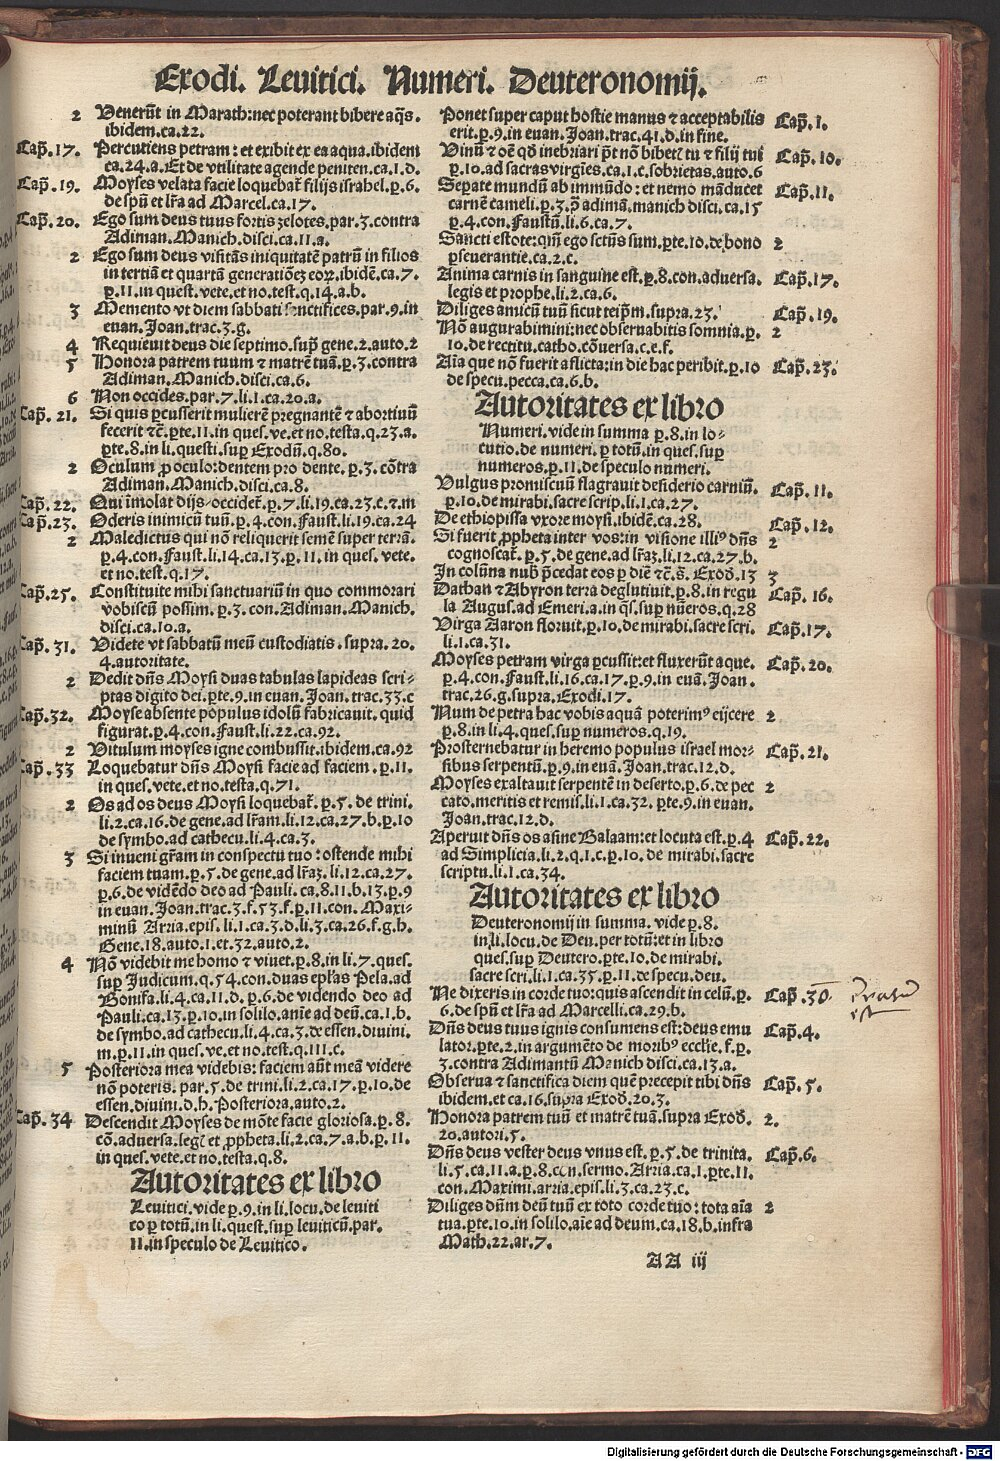 Exodi. Leuitici. Numeri. Deuteronomij.
2 Venerūt in Marath:nec poterant bibere aq̄s.
ibidem.ca.22.
Cap̄.17. Percutiens petram:et exibit ex ea aqua.ibidem
ca.24.a.Et de vtilitate agende peniten.ca.1.d.
Cap̄.19. Moyses velata facie loquebat̄ filijs israhel.p.6.
de spū et lr̄a ad Marcel.ca.17.
Cap̄.20. Ego sum deus tuus fortis zelotes.par.3.contra
Adiman.Manich.disci.ca.11.a.
2 Ego sum deus visitās iniquitatē patrū in filios
in tertiā et quartā generatiōeꝫ eoꝝ.ibidē.ca.7.
p.11.in quest.vete.et no.test.q.14.a.b.
3 Memento vt diem sabbati sanctifices.par.9.in
euan.Joan.trac.3.g.
4 Requieuit deus die septimo.sup̄ gene.2.auto.2
5 Honora patrem tuum ⁊ matrē tuā.p.3.contra
Adiman.Manich.disci.ca.6.
6 Non occides.par.7.li.1.ca.20.a.
Cap̄.21. Si quis ꝑcusserit mulierē pregnantē ⁊ abortiuū
fecerit ⁊c̄.ꝑte.11.in ques.ve.et no.testa.q.23.a.
ꝑte.8.in li.questi.sup̄ Exodū.q.80.
2 Oculum ꝓ oculo:dentem pro dente.p.3.cōtra
Adiman.Manich.disci.ca.8.
Cap̄.22. Qui īmolat dijs occidet̄.p.7.li.19.ca.23.c.⁊.m
Cap̄.23. Oderis inimicū tuū.p.4.con.Faust.li.19.ca.24
2 Maledictus qui nō reliquerit semē super terrā.
p.4.con.Faust.li.14.ca.13.p.11.in ques.vete.
et no.test.q.17.
Cap̄.25. Constituite mihi sanctuariū in quo commorari
vobiscū possim.p.3.con.Adiman.Manich.
disci.ca.10.a.
Cap̄.31. Videte vt sabbatū meū custodiatis.supra.20.
4.autoritate.
2 Dedit dn̄s Moysi duas tabulas lapideas scri-
ptas digito dei.ꝑte.9.in euan.Joan.trac.33.c
Cap̄.32. Moyse absente populus idolū fabricauit.quid
figurat.p.4.con.Faust.li.22.ca.92.
2 Vitulum moyses igne combussit.ibidem.ca.92
Cap̄.33 Loquebatur dn̄s Moysi facie ad faciem.p.11.
in ques.vete.et no.testa.q.71.
2 Os ad os deus Moysi loquebat̄.p.5.de trini.
li.2.ca.16.de gene.ad lr̄am.li.12.ca.27.b.p.10
de symbo.ad cathecu.li.4.ca.3.
3 Si inueni gr̄am in conspectu tuo:ostende mihi
faciem tuam.p.5.de gene.ad lr̄aꝫ.li.12.ca.27.
p.6.de vidēdo deo ad Pauli.ca.8.11.b.13.p.9
in euan.Joan.trac.3.f.53.f.p.11.con.Maxi-
minū Arria.epis.li.1.ca.3.d.li.3.ca.26.f.g.h.
Gene.18.auto.1.et.32.auto.2.
4 Nō videbit me homo ⁊ viuet.p.8.in li.7.ques.
sup̄ Judicum.q.54.con.duas ep̄las Pela.ad
Bonifa.li.4.ca.11.d.p.6.de videndo deo ad
Pauli.ca.13.p.10.in solilo.anīe ad deū.ca.1.b.
de symbo.ad cathecu.li.4.ca.3.de essen.diuini.
m.p.11.in ques.ve.et no.test.q.111.c.
5 Posteriora mea videbis:faciem aūt meā videre
nō poteris.par.5.de trini.li.2.ca.17.p.10.de
essen.diuini.d.h.Posteriora.auto.2.
Cap̄.34 Descendit Moyses de mōte facie gloriosa.p.8.
cō.aduersa.legꝭ et ꝓpheta.li.2.ca.7.a.b.p.11.
in ques.vete.et no.testa.q.8.
Autoritates ex libro
Leuitici.vide p.9.in li.locu.de leuiti
co ꝑ totū.in li.quest.sup̄ leuiticū.par.
11.in speculo de Leuitico.
Ponet super caput hostie manus ⁊ acceptabilis Cap̄.1.
erit.p.9.in euan.Joan.trac.41.d.in fine.
Vinū ⁊ oē qd̄ inebriari p̄t nō bibetꝭ tu ⁊ filij tui Cap̄.10.
p.10.ad sacras virgīes.ca.1.c.sobrietas.auto.6
Sepate mundū ab immūdo:et nemo māducet Cap̄.11.
carnē cameli.p.3.ꝯ̄ adimā.manich disci.ca.15
p.4.con.Faustū.li.6.ca.7.
Sancti estote:qm̄ ego sct̄us sum.ꝑte.10.de bono 2
ꝑseuerantie.ca.2.c.
Anima carnis in sanguine est.p.8.con.aduersa. Cap̄.17.
legis et prophe.li.2.ca.6.
Diliges amicū tuū sicut teip̄m.supra.23. Cap̄.19.
Nō augurabimini:nec obseruabitis somnia.p. 2
10.de rectitu.catho.cōuersa.c.e.f.
Aīa que nō fuerit aflicta:in die hac peribit.p.10 Cap̄.23.
de specu.pecca.ca.6.b.
Autoritates ex libro
Numeri.vide in summa p.8.in lo-
cutio.de numeri.ꝑ totū.in ques.sup̄
numeros.p.11.de speculo numeri.
Vulgus promiscuū flagrauit desiderio carniū. Cap̄.11.
p.10.de mirabi.sacre scrip.li.1.ca.27.
De ethiopissa vxore moysi.ibidē.ca.28. Cap̄.12.
Si fuerit ꝓpheta inter vos:in visione illiꝰ dn̄s 2
cognoscat̄.p.5.de gene.ad lr̄aꝫ.li.12.ca.27.b.
In colūna nub̄ p̄cedat eos ꝑ diē ⁊c̄.s̄.Exod̄.13 3
Dathan ⁊ Abyron terra deglutiuit.p.8.in regu Cap̄.16.
la Augus.ad Emeri.a in q̄s.sup̄ nūeros.q.28
Virga Aaron floruit.p.10.de mirabi.sacre scri. Cap̄.17.
li.1.ca.31.
Moyses petram virga ꝑcussit:et fluxerūt aque. Cap̄.20.
p.4.con.Faust.li.16.ca.17.p.9.in euā.Joan.
trac.26.g.supra.Exodi.17.
Num de petra hac vobis aquā poterimꝰ eijcere 2
p.8.in li.4.ques.sup̄ numeros.q.19.
Prosternebatur in heremo populus israel mor- Cap̄.21.
sibus serpentū.p.9.in euā.Joan.trac.12.d.
Moyses exaltauit serpentē in deserto.p.6.de pec 2
cato.meritis et remis.li.1.ca.32.ꝑte.9.in euan.
Joan.trac.12.d.
Aperuit dn̄s os asine Balaam:et locuta est.p.4 Cap̄.22.
ad Simplicia.li.2.q.1.c.p.10.de mirabi.sacre
scriptu.li.1.ca.34.
Autoritates ex libro
Deuteronomij in summa.vide p.8.
in li.locu.de Deu.per totū:et in libro
ques.sup̄ Deutero.ꝑte.10.de mirabi.
sacre scri.li.1.ca.35.p.11.de specu.deu.
Ne dixeris in corde tuo:quis ascendit in celū.p. Cap̄.30
6.de spū et lr̄a ad Marcelli.ca.29.b.
Dn̄s deus tuus ignis consumens est:deus emu Cap̄.4.
lator.ꝑte.2.in argumēto de moribꝰ eccl̄ie.f.p.
3.contra Adimantū Manich disci.ca.13.a.
Obserua ⁊ sanctifica diem quē precepit tibi dn̄s Cap̄.5.
ibidem.et ca.16.supra Exod̄.20.3.
Honora patrem tuū et matrē tuā.supra Exod̄. 2.
20.autori.5.
Dn̄s deus vester deus vnus est.p.5.de trinita. Cap̄.6.
li.5.ca.11.a.p.8.con.sermo.Arria.ca.1.ꝑte.11.
con.Maximi.arria.epis.li.3.ca.23.c.
Diliges dn̄m deū tuū ex toto corde tuo:tota aīa 2
tua.ꝑte.10.in solilo.aīe ad deum.ca.18.b.infra
Math.22.ar.7.
AA iij
Digitalisierung gefördert durch die Deutsche Forschungsgemeinschaft - DFG